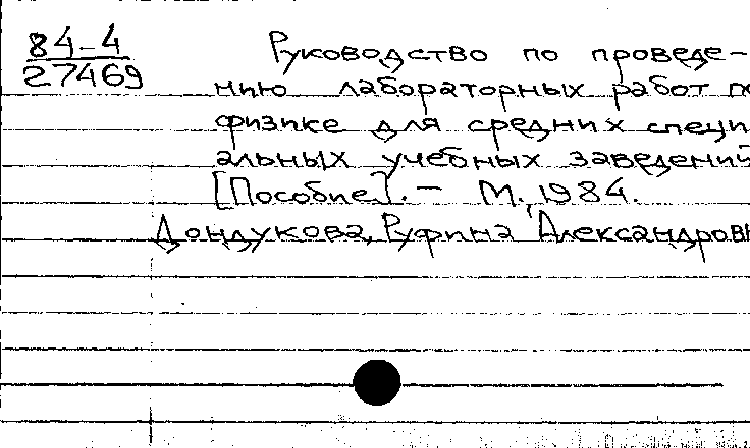 84-4
27469
Руководство по проведе-
нию лабораторных работ по
физике для средних специ
альных учебных заведений
[Пособие]. - М., 1984.
Дондукова, Руфина Александровн